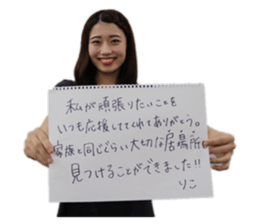 私が頑張りたいことを
いつも応援しててくれてありがとう。
家族と同じぐらい大切な居場所
見つけることができました!!
りこ